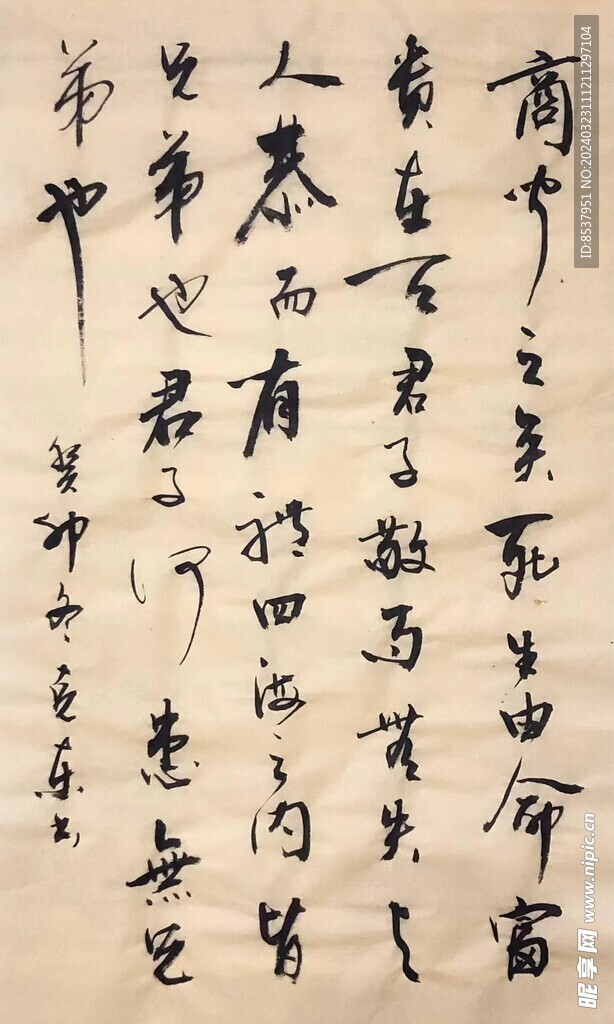 商聞之矣死生由命富
貴在天君子敬而無失与
人恭而有禮四海之内皆
兄弟也君子何患無兄
弟也
癸卯冬克東书
ID:8537951 NO:20240323111211297104
昵享网 www.nipic.cn